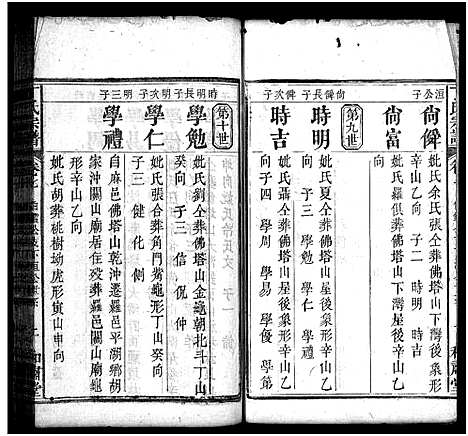 洹公子
尙傧
妣氏余氏張仝葬佛塔山下灣屋後象形
辛山乙向 子二 時明 時吉
尙富
妣氏羅俱葬佛塔山下灣屋後辛山乙向
第九世
尙傧長子 尙傧次子
時明
妣氏夏仝葬佛塔山屋後象形辛山乙
向 子三 學勉 學仁 學禮
時吉
妣氏張仝葬佛塔山屋後象形辛山乙
向 子四 學周 學易 學優 學第
第十世
時明長子 明次子 明三子
學勉
妣氏劉仝葬佛塔山金龜朝北斗丁山
癸向 子三 信 侃 仲
學仁
妣氏張合葬角門觜龜形丁山癸向
子三 健 化 側
學禮
自麻邑佛塔山乾沖遷羅邑平湖鄉胡
家沖關山廟居住歿葬羅邑關山廟左
邊
妣氏胡葬桃樹坳虎形寅山申向
和肅堂